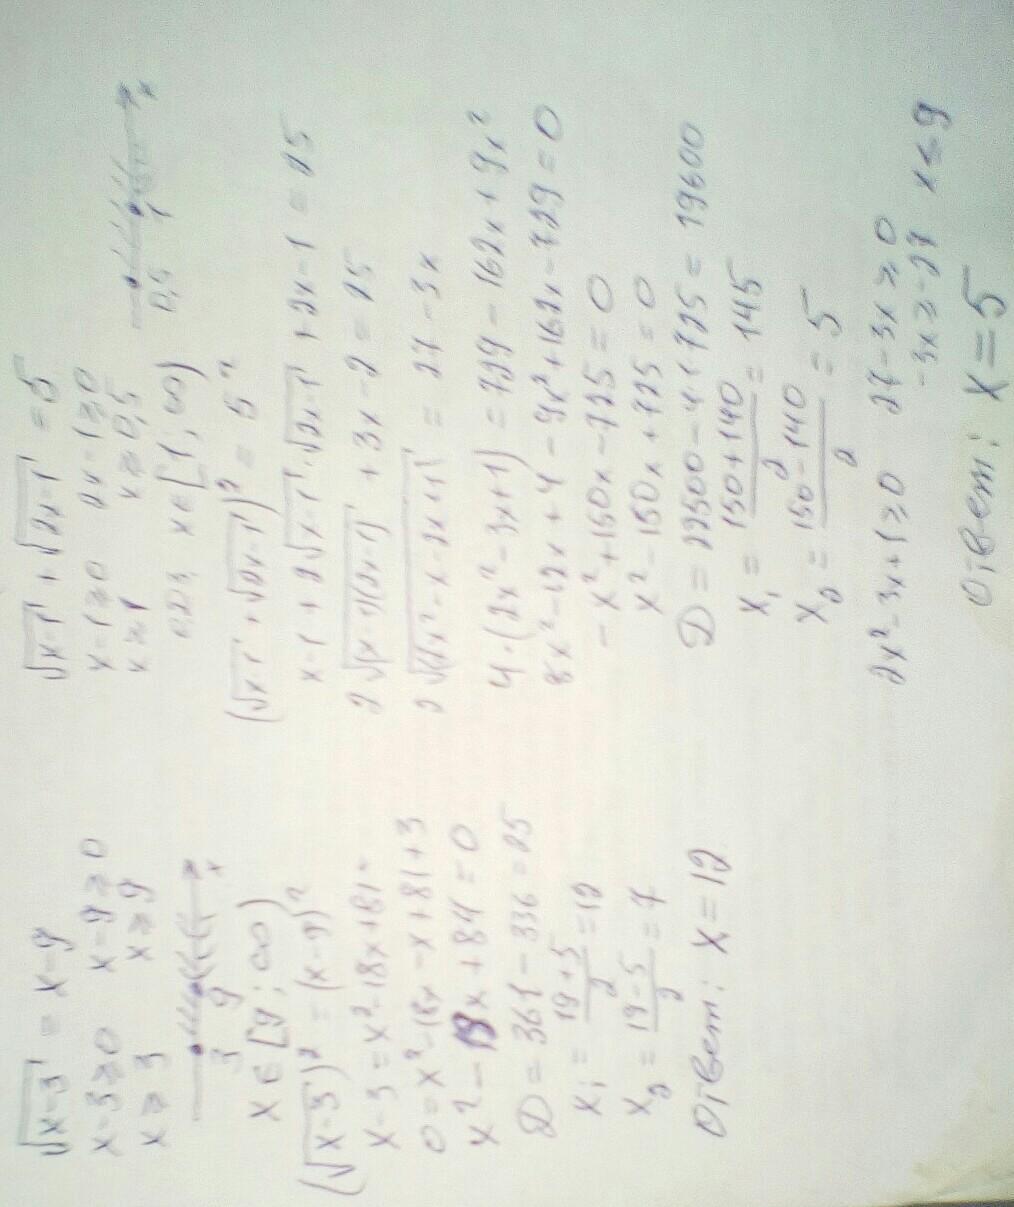 √x-3 = x-9
x-3≥0 x-9≥0
x≥3 x≥9
3 9 x
x∈[9;∞)
(√x-3)² = (x-9)²
x-3=x²-18x+81
0=x²-18x-x+81+3
x²-19x+84=0
D=361-336=25
x₁=(19+5)/2=12
x₂=(19-5)/2=7
Ответ: x=12
√x-1 + √2x-1 = 5
x-1≥0 2x-1≥0
x≥1 x≥0,5
0,5 1 x
ОДЗ x∈[1;∞)
(√x-1 + √2x-1)² = 5²
x-1+2√x-1·√2x-1+2x-1=25
2√(x-1)(2x-1) +3x-2=25
2√(2x²-x-2x+1) = 27-3x
4·(2x²-3x+1)=729-162x+9x²
8x²-12x+4-9x²+162x-729=0
-x²+150x-725=0
x²-150x+725=0
D=22500-4·725=19600
x₁=(150+140)/2=145
x₂=(150-140)/2=5
2x²-3x+1≥0 27-3x≥0
-3x≥-27 x≤9
Ответ: x=5